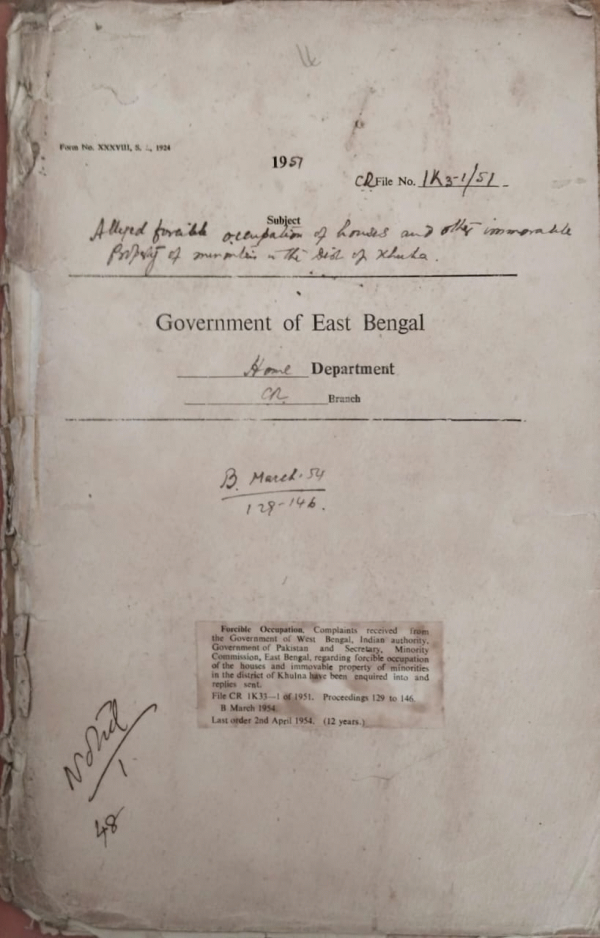 Form No. XXXVIII, S. ., 1924
1951
CR File No. 1K3-1/51
Subject
Alleged forcible occupation of houses and other immovable
Property of minorities in the Dist of Khulna.
Government of East Bengal
Home Department
CR Branch
B. March-54
129-146.
Forcible Occupation. Complaints received from
the Government of West Bengal, Indian authority,
Government of Pakistan and Secretary, Minority
Commission, East Bengal, regarding forcible occupation
of the houses and immovable property of minorities
in the district of Khulna have been enquired into and
replies sent.
File CR 1K33—1 of 1951. Proceedings 129 to 146.
B March 1954.
Last order 2nd April 1954. (12 years.)
Noted
1
48